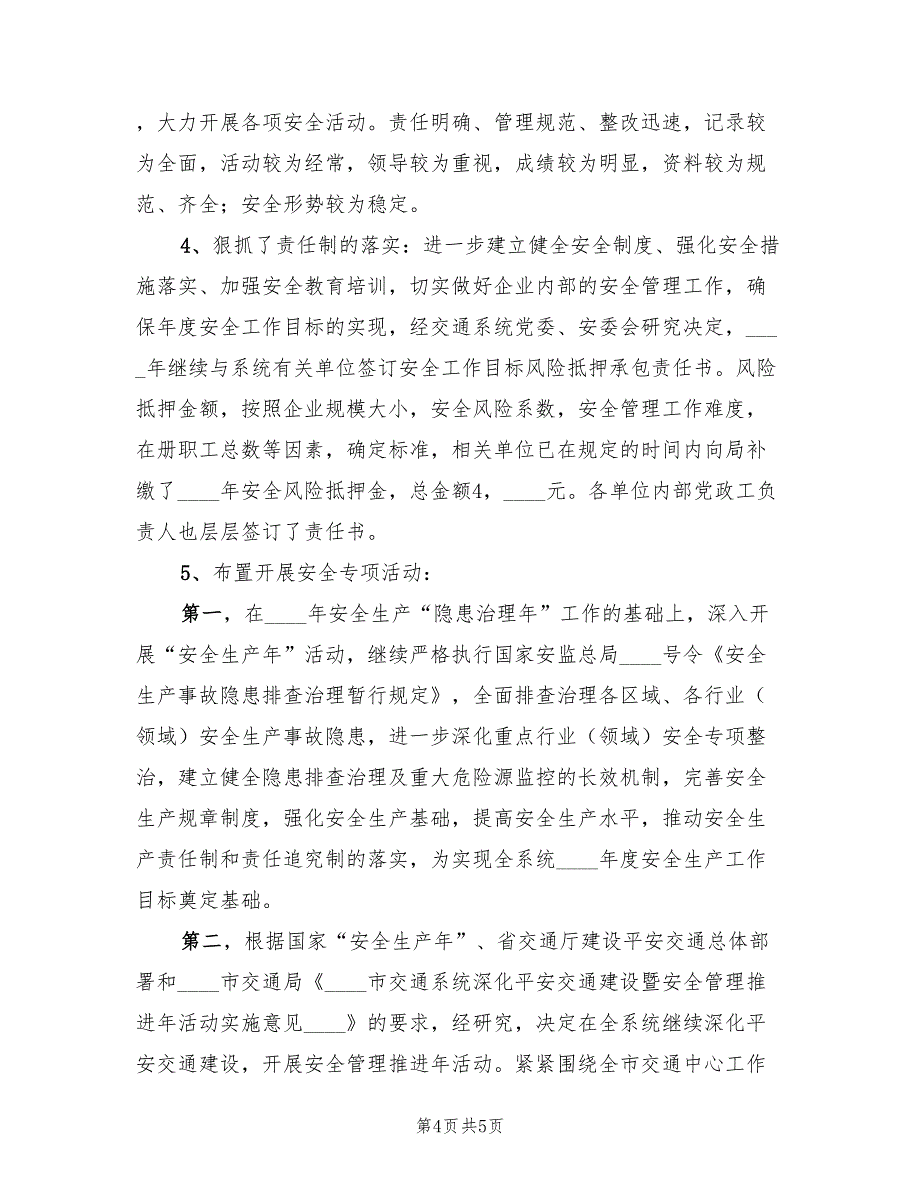 ，大力开展各项安全活动。责任明确、管理规范、整改迅速，记录较
为全面，活动较为经常，领导较为重视，成绩较为明显，资料较为规
范、齐全；安全形势较为稳定。
4、狠抓了责任制的落实：进一步建立健全安全制度、强化安全措
施落实、加强安全教育培训，切实做好企业内部的安全管理工作，确
保年度安全工作目标的实现，经交通系统党委、安委会研究决定，___
_年继续与系统有关单位签订安全工作目标风险抵押承包责任书。风险
抵押金额，按照企业规模大小，安全风险系数，安全管理工作难度，
在册职工总数等因素，确定标准，相关单位已在规定的时间内向局补
缴了____年安全风险抵押金，总金额4，____元。各单位内部党政工负
责人也层层签订了责任书。
5、布置开展安全专项活动：
第一，在____年安全生产“隐患治理年”工作的基础上，深入开
展“安全生产年”活动，继续严格执行国家安监总局____号令《安全
生产事故隐患排查治理暂行规定》，全面排查治理各区域、各行业（
领域）安全生产事故隐患，进一步深化重点行业（领域）安全专项整
治，建立健全隐患排查治理及重大危险源监控的长效机制，完善安全
生产规章制度，强化安全生产基础，提高安全生产水平，推动安全生
产责任制和责任追究制的落实，为实现全系统____年度安全生产工作
目标奠定基础。
第二，根据国家“安全生产年”、省交通厅建设平安交通总体部
署和____市交通局《____市交通系统深化平安交通建设暨安全管理推
进年活动实施意见____》的要求，经研究，决定在全系统继续深化平
安交通建设，开展安全管理推进年活动。紧紧围绕全市交通中心工作
第4页共5页